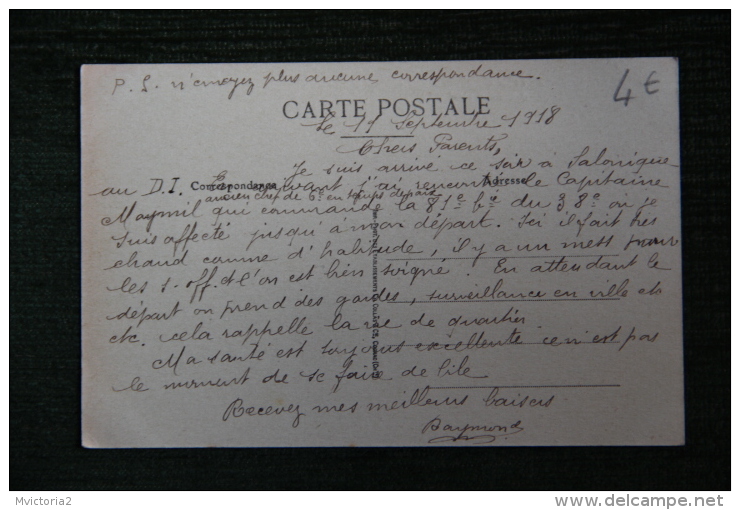 P.S. n'envoyez plus aucune correspondance.
4€
CARTE POSTALE
Le 11 Septembre 1918
Chers Parents,
Je suis arrivé ce soir à Salonique
au D.I. En arrivant j'ai rencontré le Capitaine
Correspondance
Adresse
ancien chef de 6e en temps de paix
qui commande la 81e du 38e où je
suis affecté jusqu'à mon départ. Ici il fait très
chaud comme d'habitude, il y a un mess pour
les s. off. et l'on est bien soigné. En attendant le
départ on prend des gardes, surveillance en ville etc
etc. cela rappelle la vie de quartier.
Ma santé est toujours excellente ce n'est pas
le moment de se faire de bile
Recevez mes meilleurs baisers
Raymond
Mvictoria2
www.delcampe.net